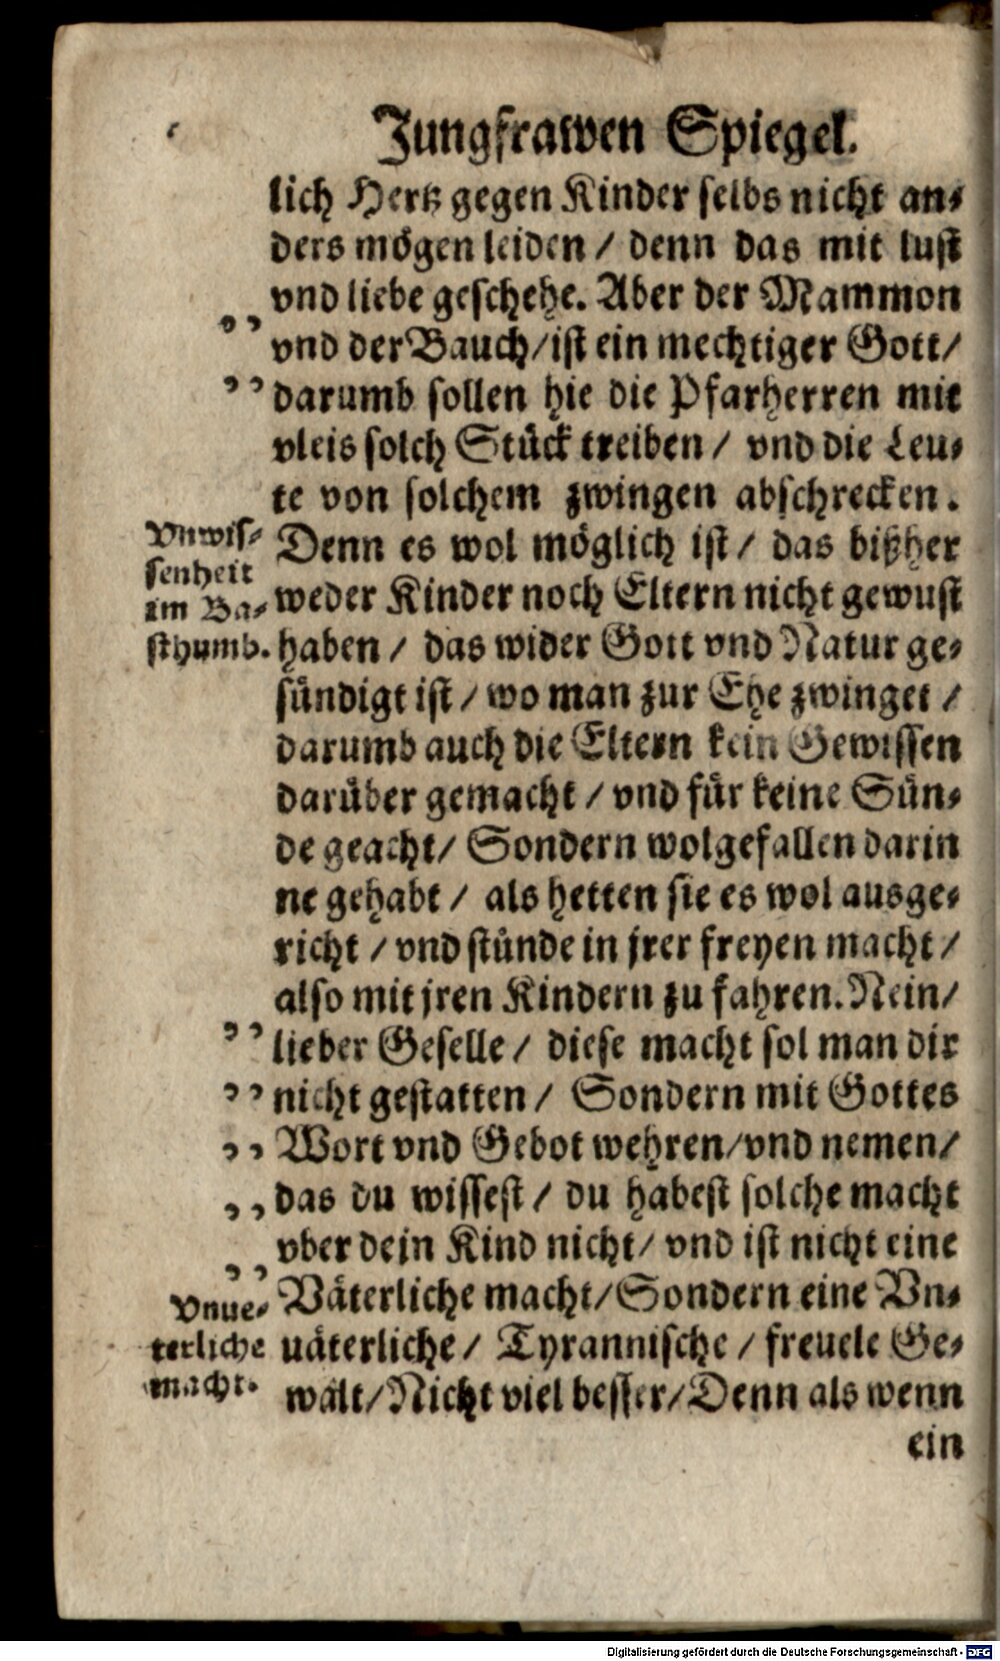 Jungfrawen Spiegel.
lich Hertz gegen Kinder selbs nicht an⸗
ders mögen leiden / denn das mit lust
vnd liebe geschehe. Aber der Mammon
„ vnd der Bauch/ist ein mechtiger Gott/
„ darumb sollen hie die Pfarherren mit
vleis solch Stück treiben / vnd die Leu⸗
te von solchem zwingen abschrecken.
Vnwis⸗
senheit
im Ba⸗
sthumb.
Denn es wol möglich ist / das bißher
weder Kinder noch Eltern nicht gewust
haben / das wider Gott vnd Natur ge⸗
sündigt ist / wo man zur Ehe zwinget /
darumb auch die Eltern kein Gewissen
darüber gemacht / vnd für keine Sün⸗
de geacht/ Sondern wolgefallen darin
ne gehabt / als hetten sie es wol ausge⸗
richt / vnd stünde in jrer freyen macht /
also mit jren Kindern zu fahren. Nein/
„ lieber Geselle / diese macht sol man dir
„ nicht gestatten / Sondern mit Gottes
„ Wort vnd Gebot wehren/vnd nemen/
„ das du wissest / du habest solche macht
„ vber dein Kind nicht/ vnd ist nicht eine
Vnue⸗
terliche
macht.
Väterliche macht/Sondern eine Vn⸗
uäterliche / Tyrannische / freuele Ge⸗
walt/Nicht viel besser/Denn als wenn
ein
Digitalisierung gefördert durch die Deutsche Forschungsgemeinschaft - DFG